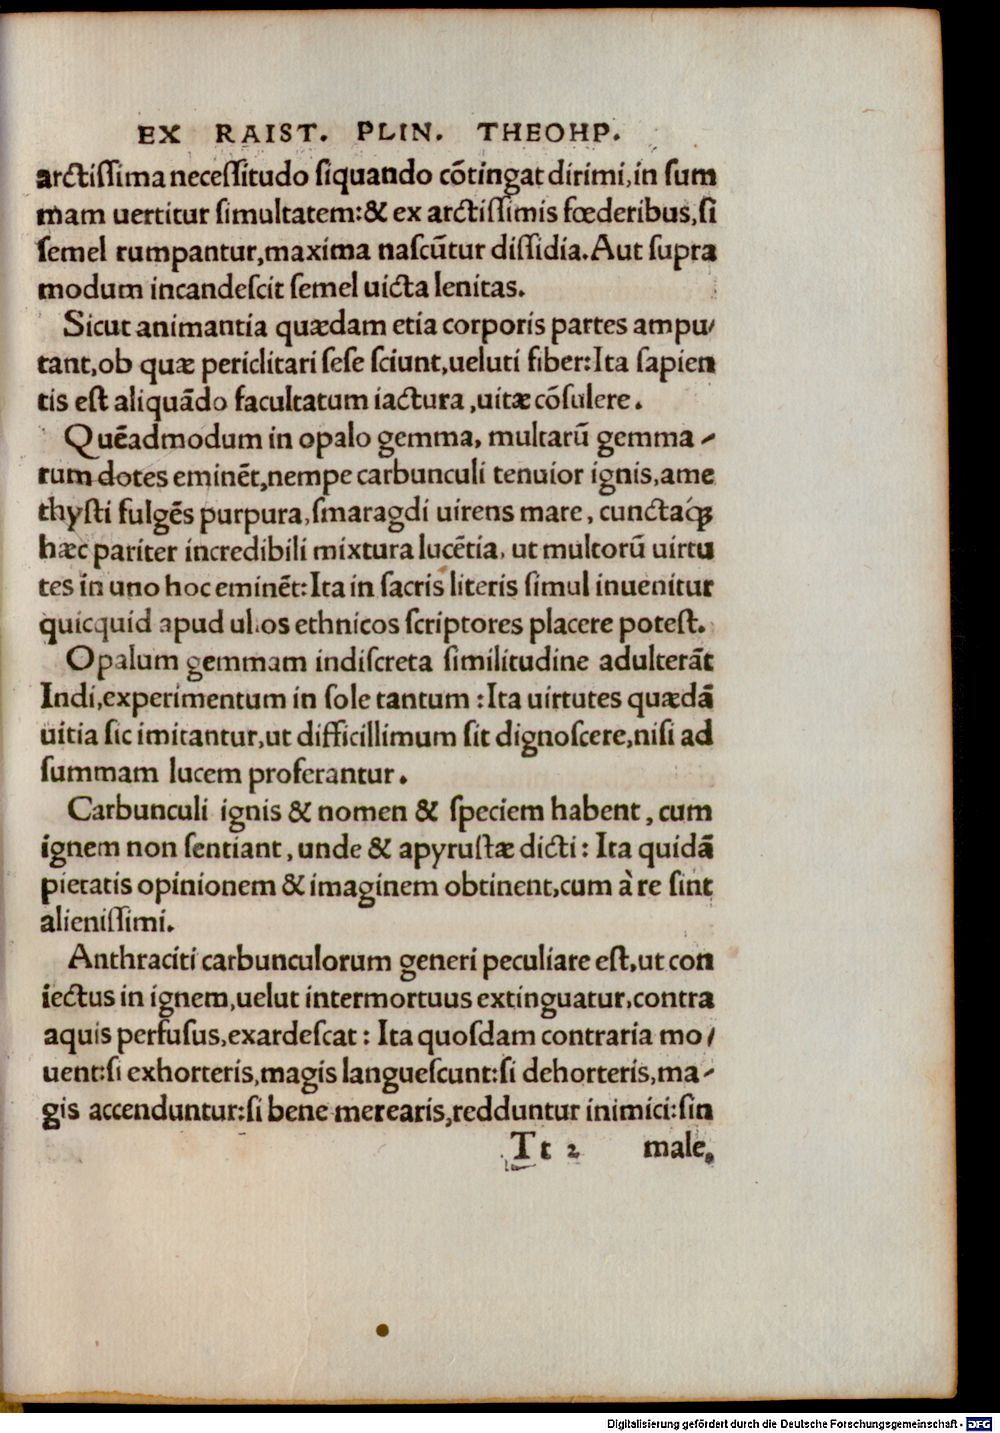 EX RAIST. PLIN. THEOHP.
arctiſſima neceſſitudo ſiquando cōtingat dirimi, in ſum
mam uertitur ſimultatem: & ex arctiſſimis fœderibus, ſi
ſemel rumpantur, maxima naſcūtur diſſidia. Aut ſupra
modum incandeſcit ſemel uicta lenitas.
Sicut animantia quædam etia corporis partes ampu/
tant, ob quæ periclitari ſeſe ſciunt, ueluti fiber: Ita ſapien
tis eſt aliquādo facultatum iactura, uitæ cōſulere.
Quēadmodum in opalo gemma, multarū gemma-
rum dotes eminēt, nempe carbunculi tenuior ignis, ame
thyſti fulgēs purpura, ſmaragdi uirens mare, cunctaqꝫ
hæc pariter incredibili mixtura lucētia, ut multorū uirtu
tes in uno hoc eminēt: Ita in ſacris literis ſimul inuenitur
quicquid apud ullos ethnicos ſcriptores placere poteſt.
Opalum gemmam indiſcreta ſimilitudine adulterāt
Indi, experimentum in ſole tantum: Ita uirtutes quædā
uitia ſic imitantur, ut difficillimum ſit dignoſcere, niſi ad
ſummam lucem proferantur.
Carbunculi ignis & nomen & ſpeciem habent, cum
ignem non ſentiant, unde & apyruſtæ dicti: Ita quidā
pietatis opinionem & imaginem obtinent, cum à re ſint
alieniſſimi.
Anthraciti carbunculorum generi peculiare eſt, ut con
iectus in ignem, uelut intermortuus extinguatur, contra
aquis perfuſus, exardeſcat: Ita quoſdam contraria mo/
uent: ſi exhorteris, magis langueſcunt: ſi dehorteris, ma-
gis accenduntur: ſi bene merearis, redduntur inimici: ſin
Tt 2 male,
Digitalisierung gefördert durch die Deutsche Forschungsgemeinschaft - DFG